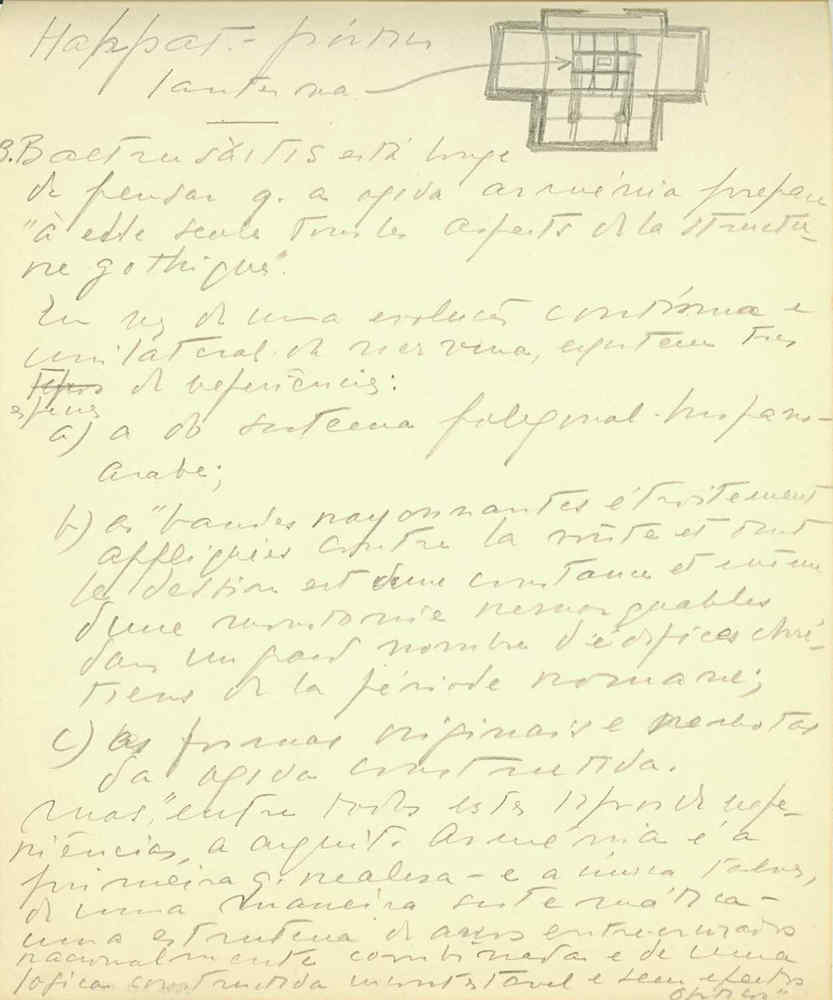 Happat. - pórtico
lanterna
B. Baltrusaitis está longe
de pensar q. a ogiva arménia prepare
"à elle seule tous les aspects de la structu-
re gothique".
Em vez de uma evolução contínua e
unilateral da nervura, existem tres
tipos de experiências:
a) a do sistema poligonal hispano-
arabe;
b) as "bandes rayonnantes étroitement
appliquées contre la voûte et dont
le dessin est d'une constance et même
d'une monotonie remarquables
dans un grand nombre d'édifices chré-
tiens de la période romane;
c) as formas originais e remotas
da ogiva construida.
mas, "entre todos estes tipos de expe-
riências, a arquit. Arménia é a
primeira q. realiza - e a única talvez,
de uma maneira sistemática -
uma estrutura de arcos entrecruzados
racionalmente combinada e de uma
logica construtiva incontestavel e sem efeitos
opticos"